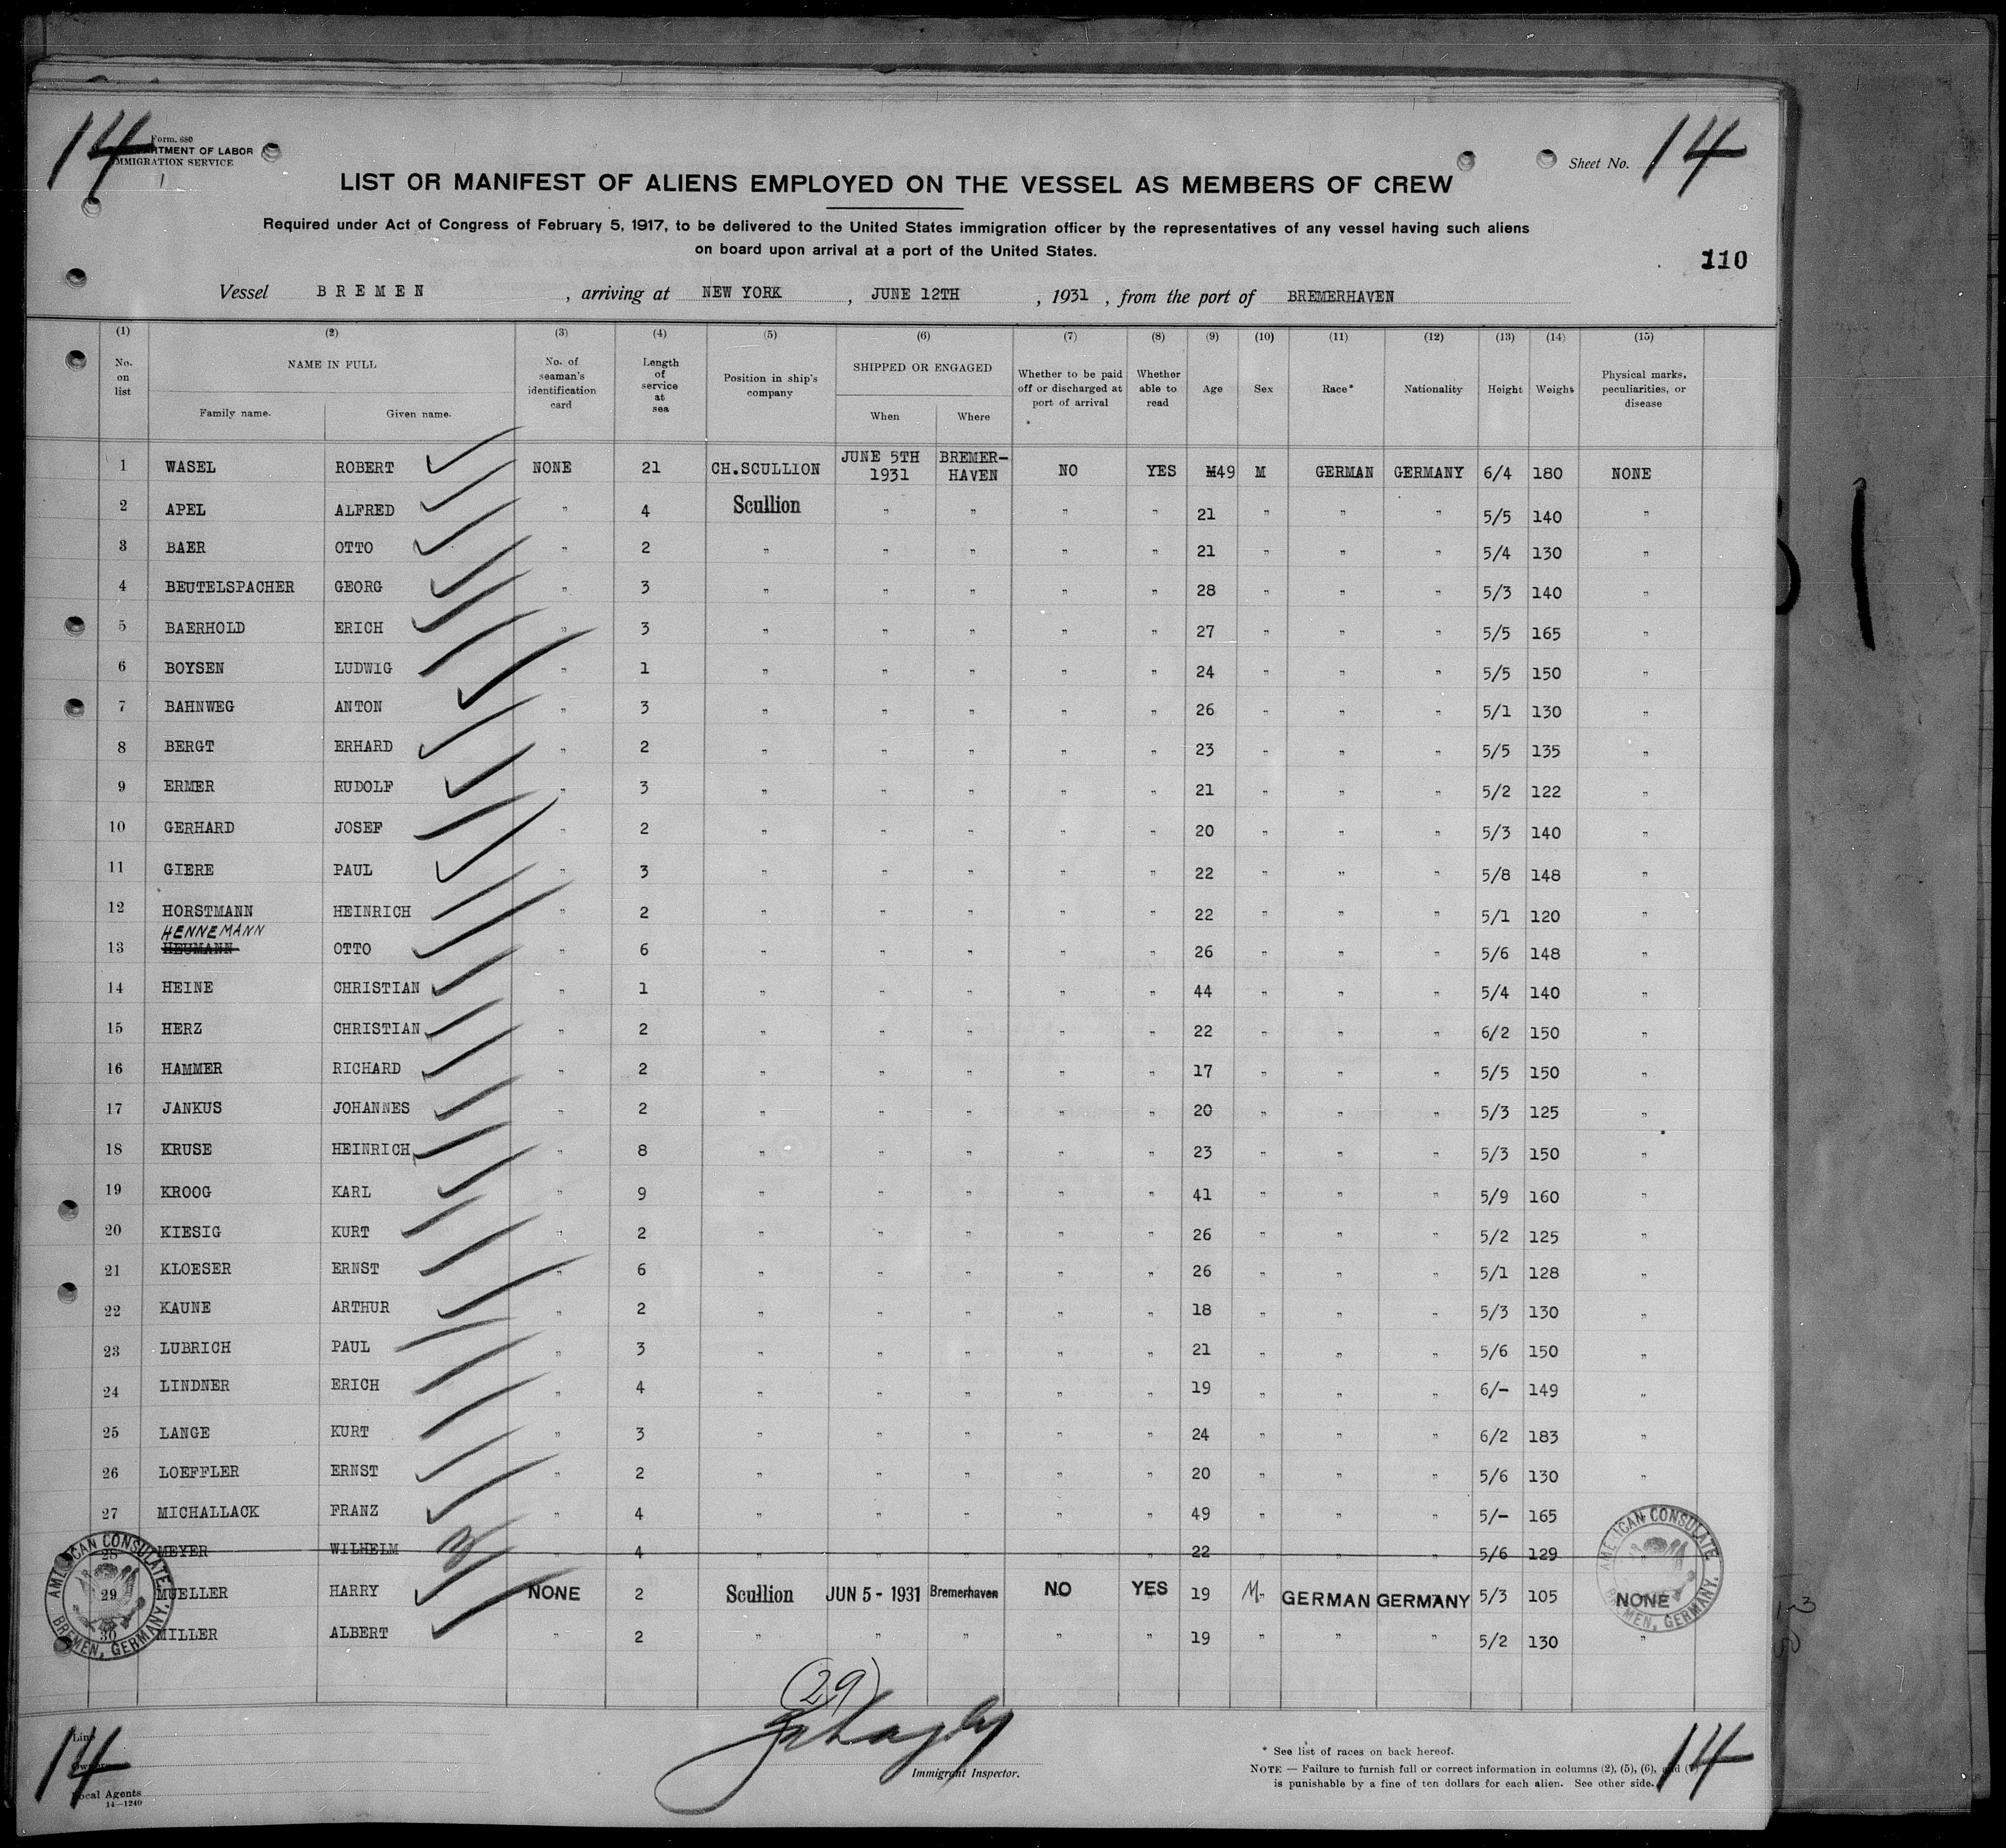 14
Form. 680
DEPARTMENT OF LABOR
IMMIGRATION SERVICE
Sheet No. 14
LIST OR MANIFEST OF ALIENS EMPLOYED ON THE VESSEL AS MEMBERS OF CREW
Required under Act of Congress of February 5, 1917, to be delivered to the United States immigration officer by the representatives of any vessel having such aliens
on board upon arrival at a port of the United States.
110
Vessel BREMEN , arriving at NEW YORK , JUNE 12TH , 1931 , from the port of BREMERHAVEN
(1) (2) (3) (4) (5) (6) (7) (8) (9) (10) (11) (12) (13) (14) (15)
No. on list NAME IN FULL Family name. Given name. No. of seaman's identification card Length of service at sea Position in ship's company SHIPPED OR ENGAGED When Where Whether to be paid off or discharged at port of arrival Whether able to read Age Sex Race* Nationality Height Weight Physical marks, peculiarities, or disease
1 WASEL ROBERT NONE 21 CH.SCULLION JUNE 5TH 1931 BREMER-HAVEN NO YES M49 M GERMAN GERMANY 6/4 180 NONE
2 APEL ALFRED " 4 Scullion " " " " 21 " " " 5/5 140 "
3 BAER OTTO " 2 " " " " " 21 " " " 5/4 130 "
4 BEUTELSPACHER GEORG " 3 " " " " " 28 " " " 5/3 140 "
5 BAERHOLD ERICH " 3 " " " " " 27 " " " 5/5 165 "
6 BOYSEN LUDWIG " 1 " " " " " 24 " " " 5/5 150 "
7 BAHNWEG ANTON " 3 " " " " " 26 " " " 5/1 130 "
8 BERGT ERHARD " 2 " " " " " 23 " " " 5/5 135 "
9 ERMER RUDOLF " 3 " " " " " 21 " " " 5/2 122 "
10 GERHARD JOSEF " 2 " " " " " 20 " " " 5/3 140 "
11 GIERE PAUL " 3 " " " " " 22 " " " 5/8 148 "
12 HORSTMANN HEINRICH " 2 " " " " " 22 " " " 5/1 120 "
HENNEMANN
13 HEUMANN OTTO " 6 " " " " " 26 " " " 5/6 148 "
14 HEINE CHRISTIAN " 1 " " " " " 44 " " " 5/4 140 "
15 HERZ CHRISTIAN " 2 " " " " " 22 " " " 6/2 150 "
16 HAMMER RICHARD " 2 " " " " " 17 " " " 5/5 150 "
17 JANKUS JOHANNES " 2 " " " " " 20 " " " 5/3 125 "
18 KRUSE HEINRICH " 8 " " " " " 23 " " " 5/3 150 "
19 KROOG KARL " 9 " " " " " 41 " " " 5/9 160 "
20 KIESIG KURT " 2 " " " " " 26 " " " 5/2 125 "
21 KLOESER ERNST " 6 " " " " " 26 " " " 5/1 128 "
22 KAUNE ARTHUR " 2 " " " " " 18 " " " 5/3 130 "
23 LUBRICH PAUL " 3 " " " " " 21 " " " 5/6 150 "
24 LINDNER ERICH " 4 " " " " " 19 " " " 6/- 149 "
25 LANGE KURT " 3 " " " " " 24 " " " 6/2 183 "
26 LOEFFLER ERNST " 2 " " " " " 20 " " " 5/6 130 "
27 MICHALLACK FRANZ " 4 " " " " " 49 " " " 5/- 165 "
28 MEYER WILHELM " 4 " " " " " 22 " " " 5/6 129 "
29 MUELLER HARRY NONE 2 Scullion JUN 5 - 1931 Bremerhaven NO YES 19 M " GERMAN GERMANY 5/3 105 NONE
30 MILLER ALBERT " 2 " " " " " 19 " " " 5/2 130 "
AMERICAN CONSULATE
BREMEN, GERMANY.
AMERICAN CONSULATE
BREMEN, GERMANY.
(29)
Immigrant Inspector.
14
Line
Owners
Local Agents
14—1240
* See list of races on back hereof.
NOTE — Failure to furnish full or correct information in columns (2), (5), (6), and (7)
is punishable by a fine of ten dollars for each alien. See other side.
14